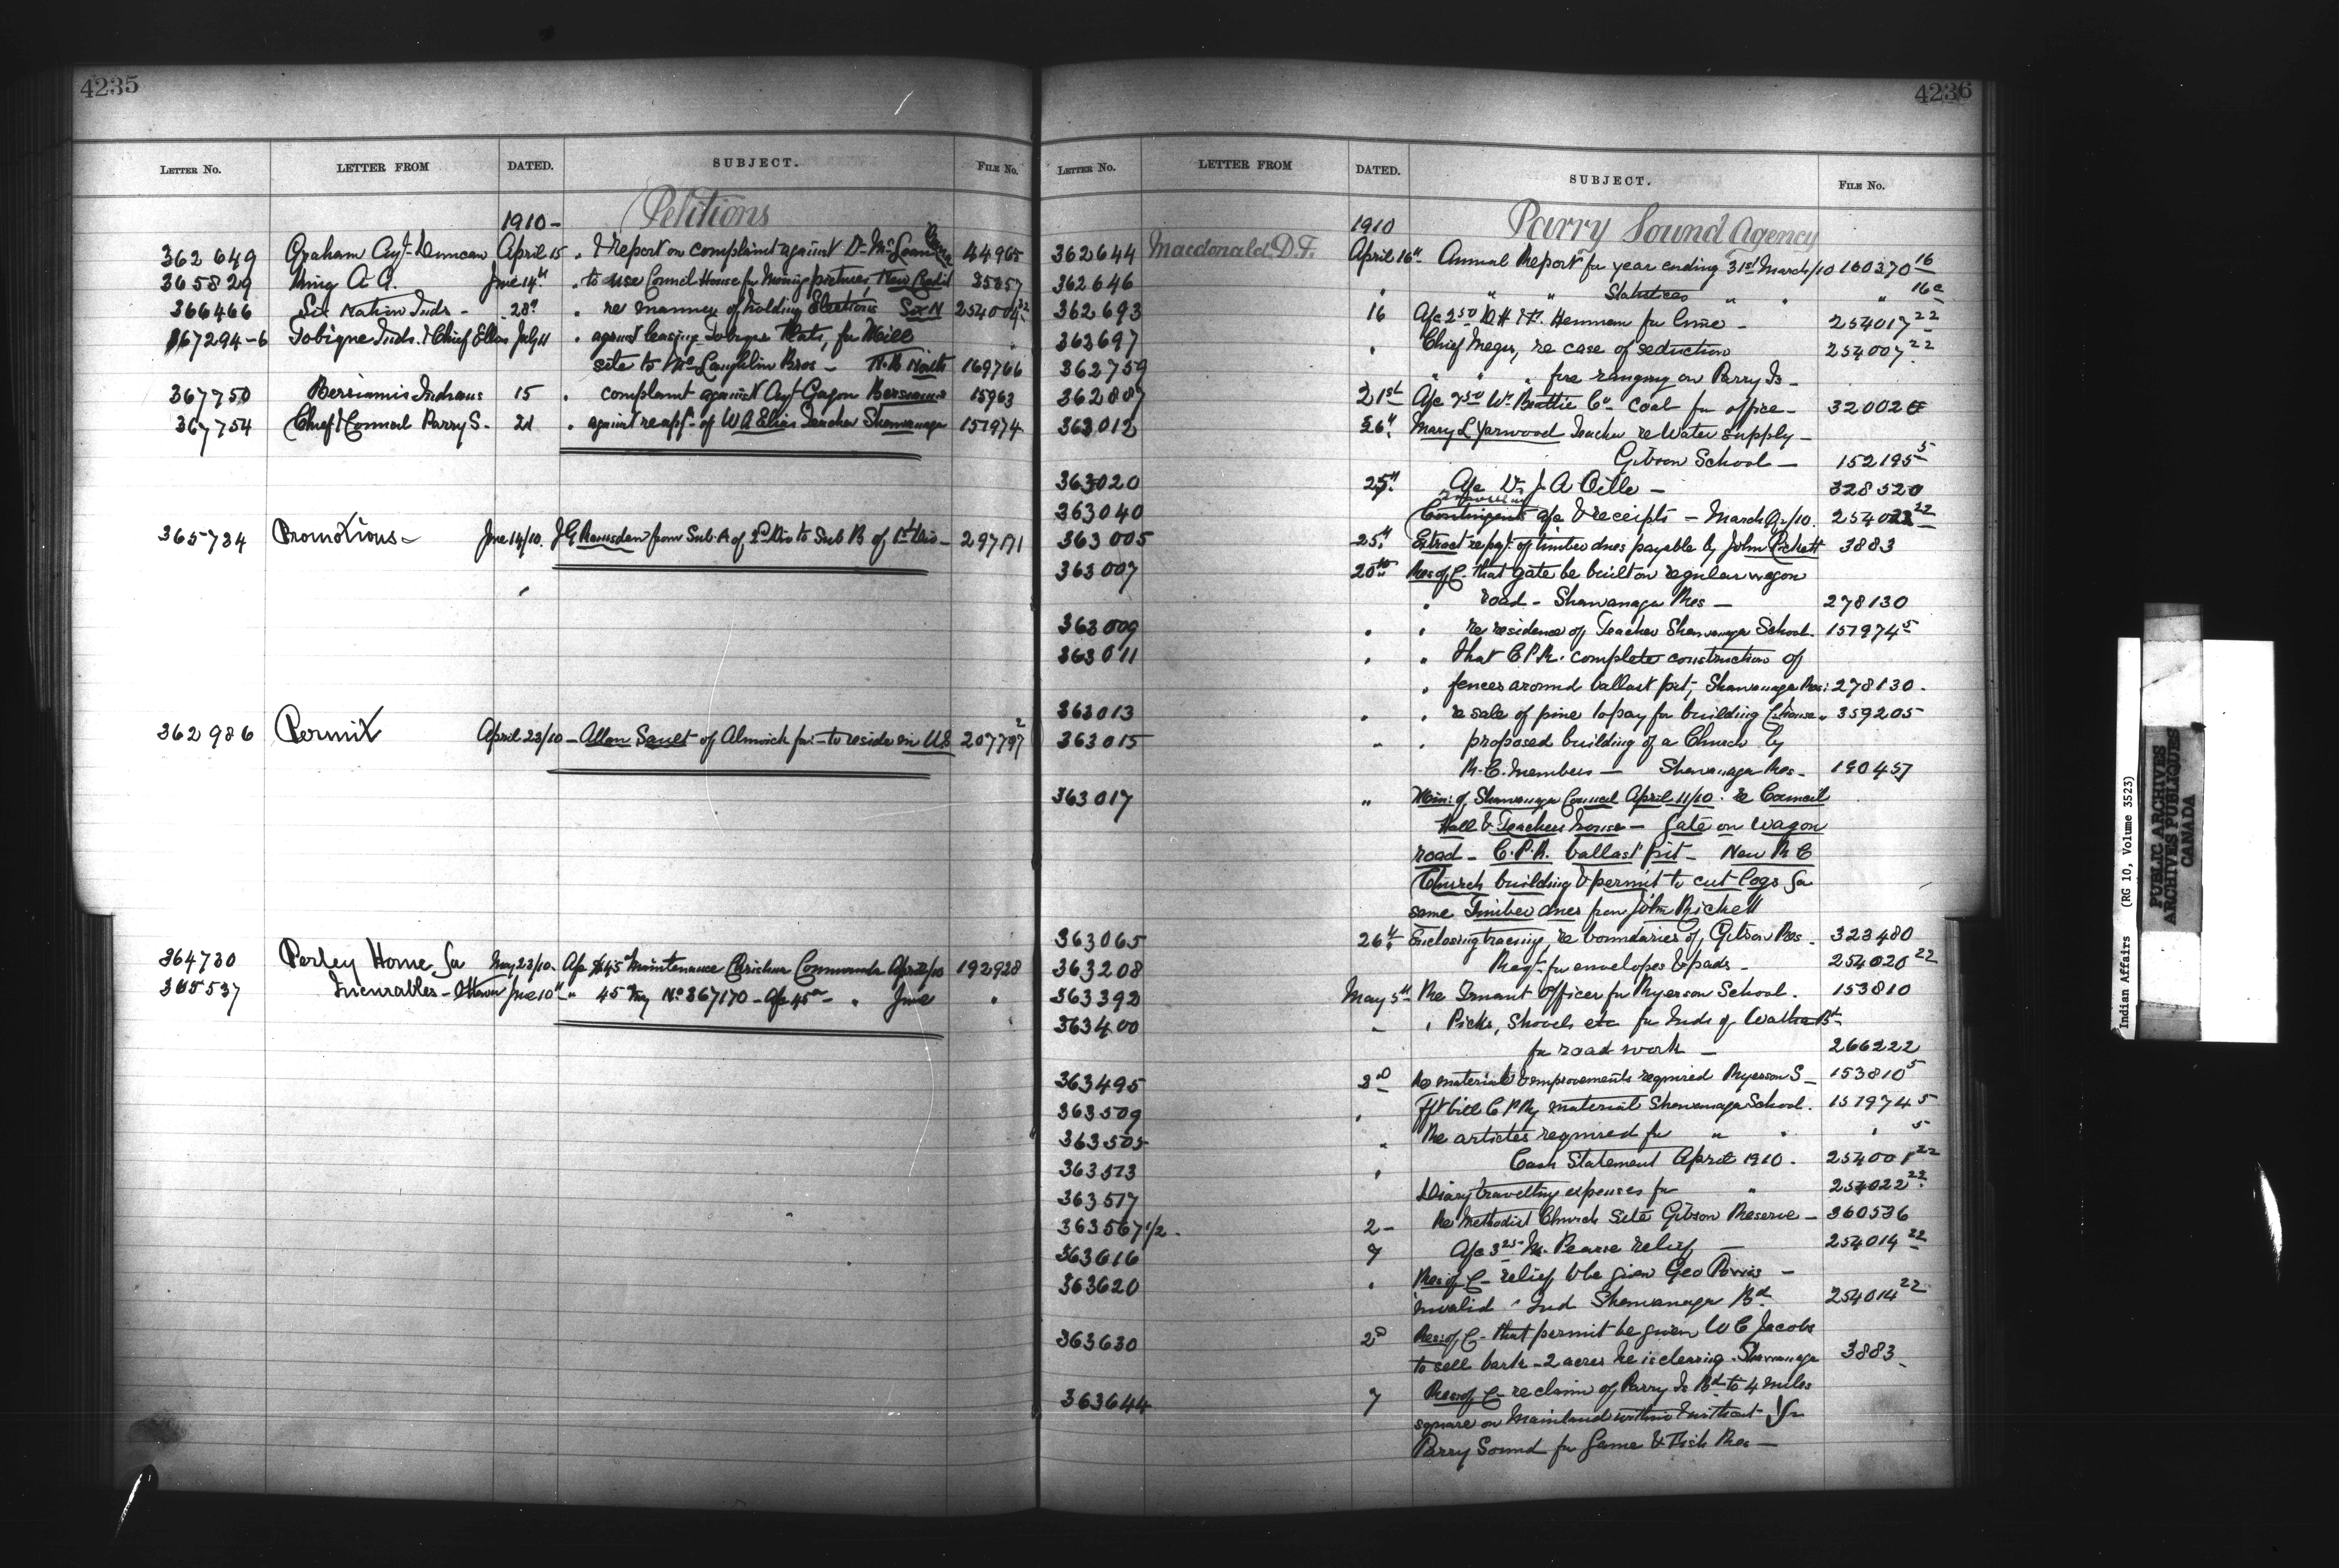 4235
LETTER No. LETTER FROM DATED. SUBJECT. FILE No.
Petitions
1910-
362649 Graham Agt. Duncan April 15 . & report on complaint against Dr. 44965
365829 King A A. June 14th . to use Council House for Moving pictures, New Credit 35857
366466 Six Nation Inds - 28th . re manner of holding Elections Six N 254004 22
367294-6 Tobique Inds. & Chief Ellis July 11 . against leasing Tobique Flats, for Mill
site to McLaughlin Bros - N.B. North 169766
367750 Bersiamis Indians 15 . complaint against Agt Gagnon Bersiamis 15963
367754 Chief & Council Parry S. 21 . against reapp't of W A Elias Teacher Shawanaga 151974
365734 Promotions - June 14/10. J G Ramsden from Sub. A of 2nd Div to Sub B of 1st Div - 297171
362986 Permit April 23/10 - Allan Sault of Alnwick for - to reside in US 207797 2
364730 Perley Home for May 23/10. A/c $45 00 Maintenance Commanda April/10 192928
365537 Incurables - Ottawa June 10th - " 45 May No 367170 - A/c 45 00 - " June "
4236
LETTER No. LETTER FROM DATED. SUBJECT. FILE No.
1910 Parry Sound Agency
362644 Macdonald, D.F. April 16th Annual Report for year ending 31st March/10 160370 16
362646 " " " Statistics " " " 16c
362693 16 A/c 2 50 W H Henman for lime - 254017 22
363697 " Chief Megis, re case of seduction 254007 22
362759 " " " fire ranging on Parry Is -
362887 21st A/c 7 50 Wm Beattie Co. Coal for office - 320020
363012 26th Mary L Yarwood Teacher re Water supply -
Gibson School - 152195 5
363020 25th A/c Dr. J A Oille - 328520
363040 Contingent a/c & receipts - March Qr/10. 254022 22
363005 25th Extract re pay't of timber dues payable by John Pickett 3883
363007 20th Res of C - that gate be built on regular wagon
" road - Shawanaga Res - 278130
363009 " " re residence of Teacher Shawanaga School. 151974 5
363011 " " that C.P.R. complete construction of
" fences around ballast pit, Shawanaga Res: 278130.
363013 " " re sale of pine to pay for building C House " 359205
363015 " " proposed building of a Church by
R.C. Members - Shawanaga Res - 190457
363017 " Min: of Shawanaga Council April 11/10. re Council
Hall & Teachers house - Gate on Wagon
road - C.P.R. ballast pit - New R C
Church building & permit to cut logs for
same Timber dues from John Pickett
363065 26th Enclosing tracing, re boundaries of Gibson Res - 323480
363208 Reqt. for envelopes & pads - 254020 22
363392 May 5th Re Truant Officer for Ryerson School. 153810
363400 " " Picks, Shovels etc for Inds of Watha Bd.
for road work - 266222
363495 3rd Re material & improvements required Ryerson S - 153810 5
363509 " Fft bill C P Ry material Shawanaga School. 151974 5
363505 " Re articles required for " " " 5
363513 " Cash Statement April 1910. 254001 22
363517 Diary travelling expenses for " 254022 22
363567 1/2. 2 - Re Methodist Church Site Gibson Reserve - 360536
363616 7 A/c 3 25 - M. Pearse relief - 254014 22
363620 " Res of C - relief to be given Geo Pawis -
invalid Ind Shawanaga Bd. 254014 22
363630 2nd Res: of C - that permit be given W C Jacobs
to sell bark - 2 acres he is clearing - Shawanaga 3883
363644 7 Res of C - re claim of Parry Is Bd. to 4 miles
square on Mainland within & without
Parry Sound for Game & Fish Res -
Indian Affairs (RG 10, Volume 3523)
PUBLIC ARCHIVES
ARCHIVES PUBLIQUES
CANADA